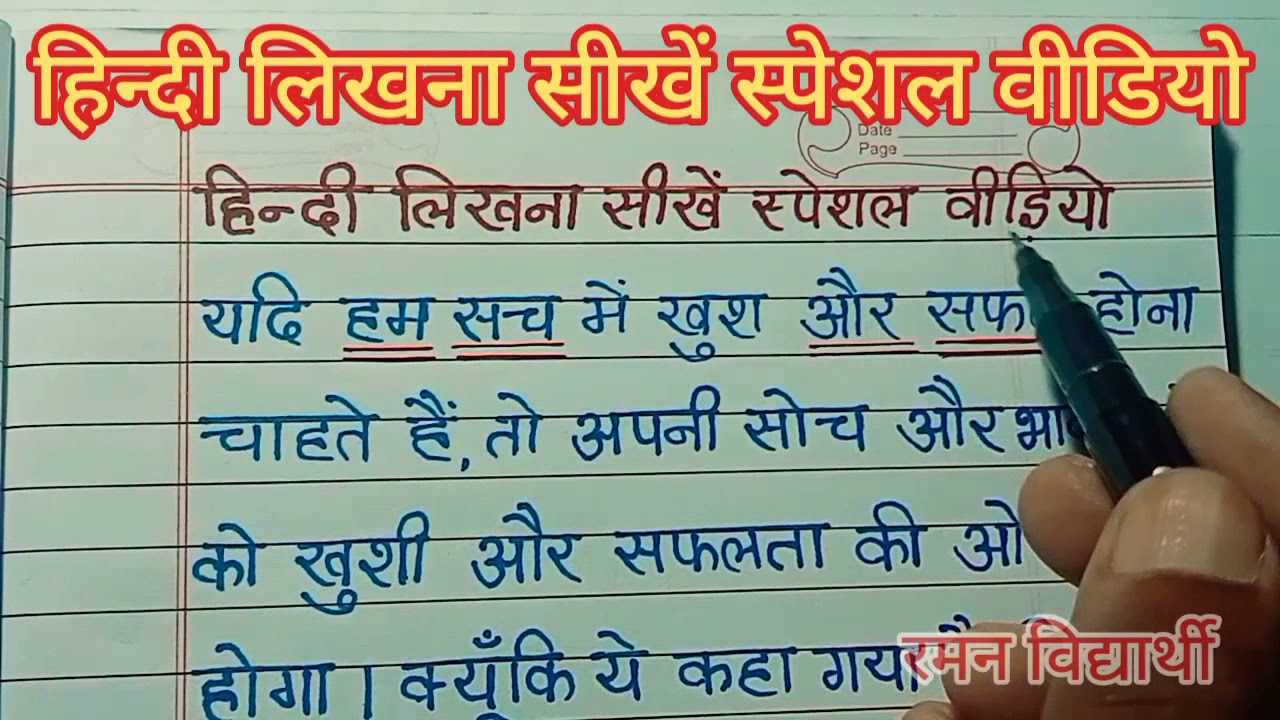 हिन्दी लिखना सीखें स्पेशल वीडियो
Date
Page
हिन्दी लिखना सीखें स्पेशल वीडियो
यदि हम सच में खुश और होना
चाहते हैं, तो अपनी सोच और
को खुशी और सफलता की
होगा। क्यूँकि ये कहा गया
रमन विद्यार्थी